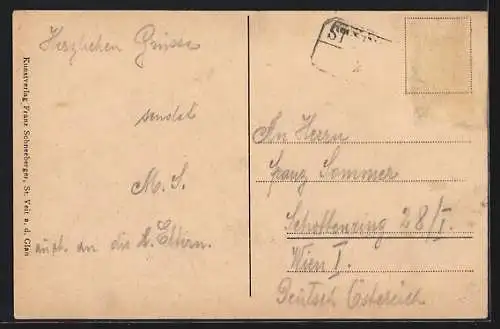 Herzlichen Grüsse
sendet
M. S.
auch an die l. Eltern.
Kunstverlag Franz Schneeberger, St. Veit a. d. Glan
ST
An Herrn
Franz Sommer
Schottenring 28/I.
Wien I.
Deutsch Österreich